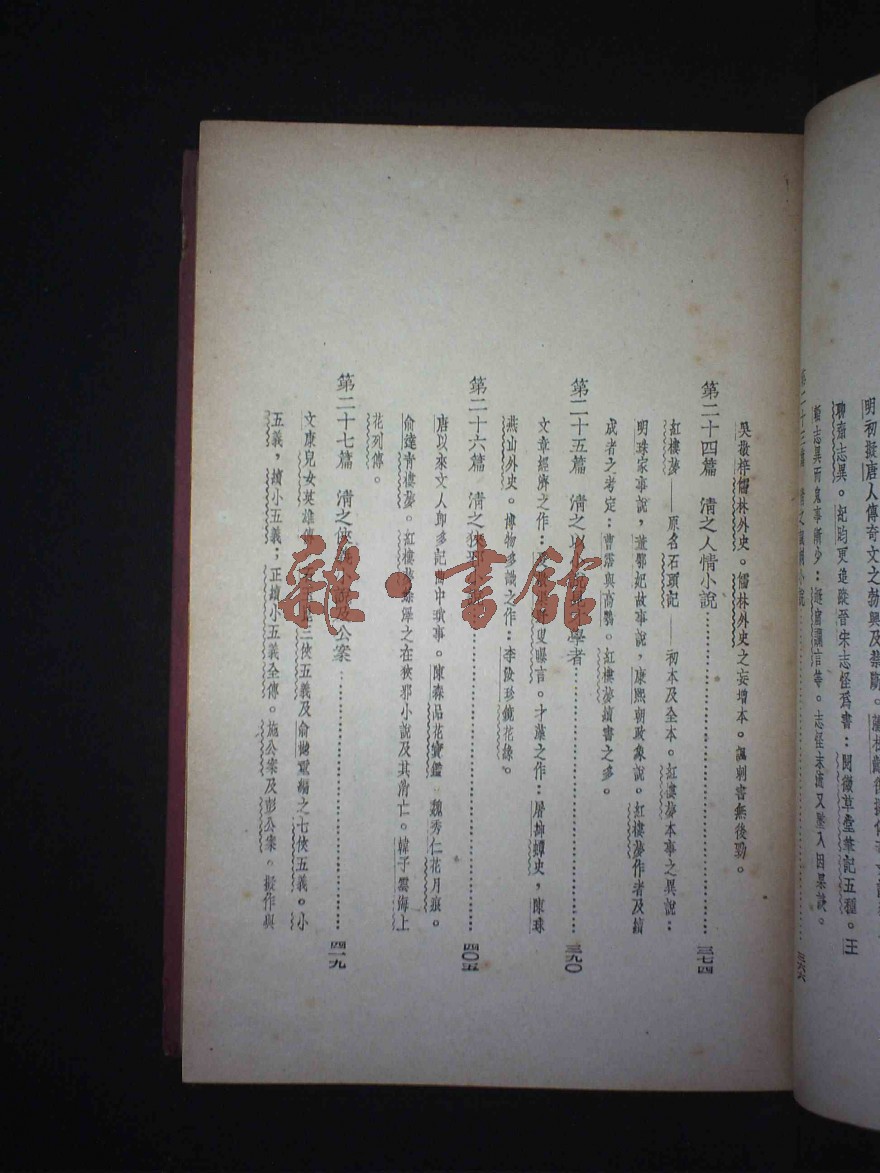 明初擬唐人傳奇文之勃興及禁
聊齋志異。紀昀更追蹤晉宋志怪爲書：閱微草堂筆記五種。王
韜志異而鬼事漸少：遯窟讕言等。志怪末流又墜入因果談。
小說 三六六
吳敬梓儒林外史。儒林外史之妄增本。諷刺書無後勁。
第二十四篇 清之人情小說 三七四
紅樓夢——原名石頭記——初本及全本。紅樓夢本事之異說：
明珠家事說，董鄂妃故事說，康熙朝政象說。紅樓夢作者及續
成者之考定：曹霑與高鶚。紅樓夢續書之多。
第二十五篇 清之以 學者 三九〇
文章經濟之作： 叟曝言。才藻之作：屠紳蟫史，陳球
燕山外史。博物多識之作：李汝珍鏡花緣。
第二十六篇 清之狹邪 說 四〇五
唐以來文人卽多記 中瑣事。陳森品花寶鑑。魏秀仁花月痕。
俞達靑樓夢。紅樓夢餘澤之在狹邪小說及其消亡。韓子雲海上
花列傳。
第二十七篇 清之俠義小說及公案 四一九
文康兒女英雄傳。 三俠五義及俞樾重編之七俠五義。小
五義，續小五義；正續小五義全傳。施公案及彭公案。擬作與
雜·書館